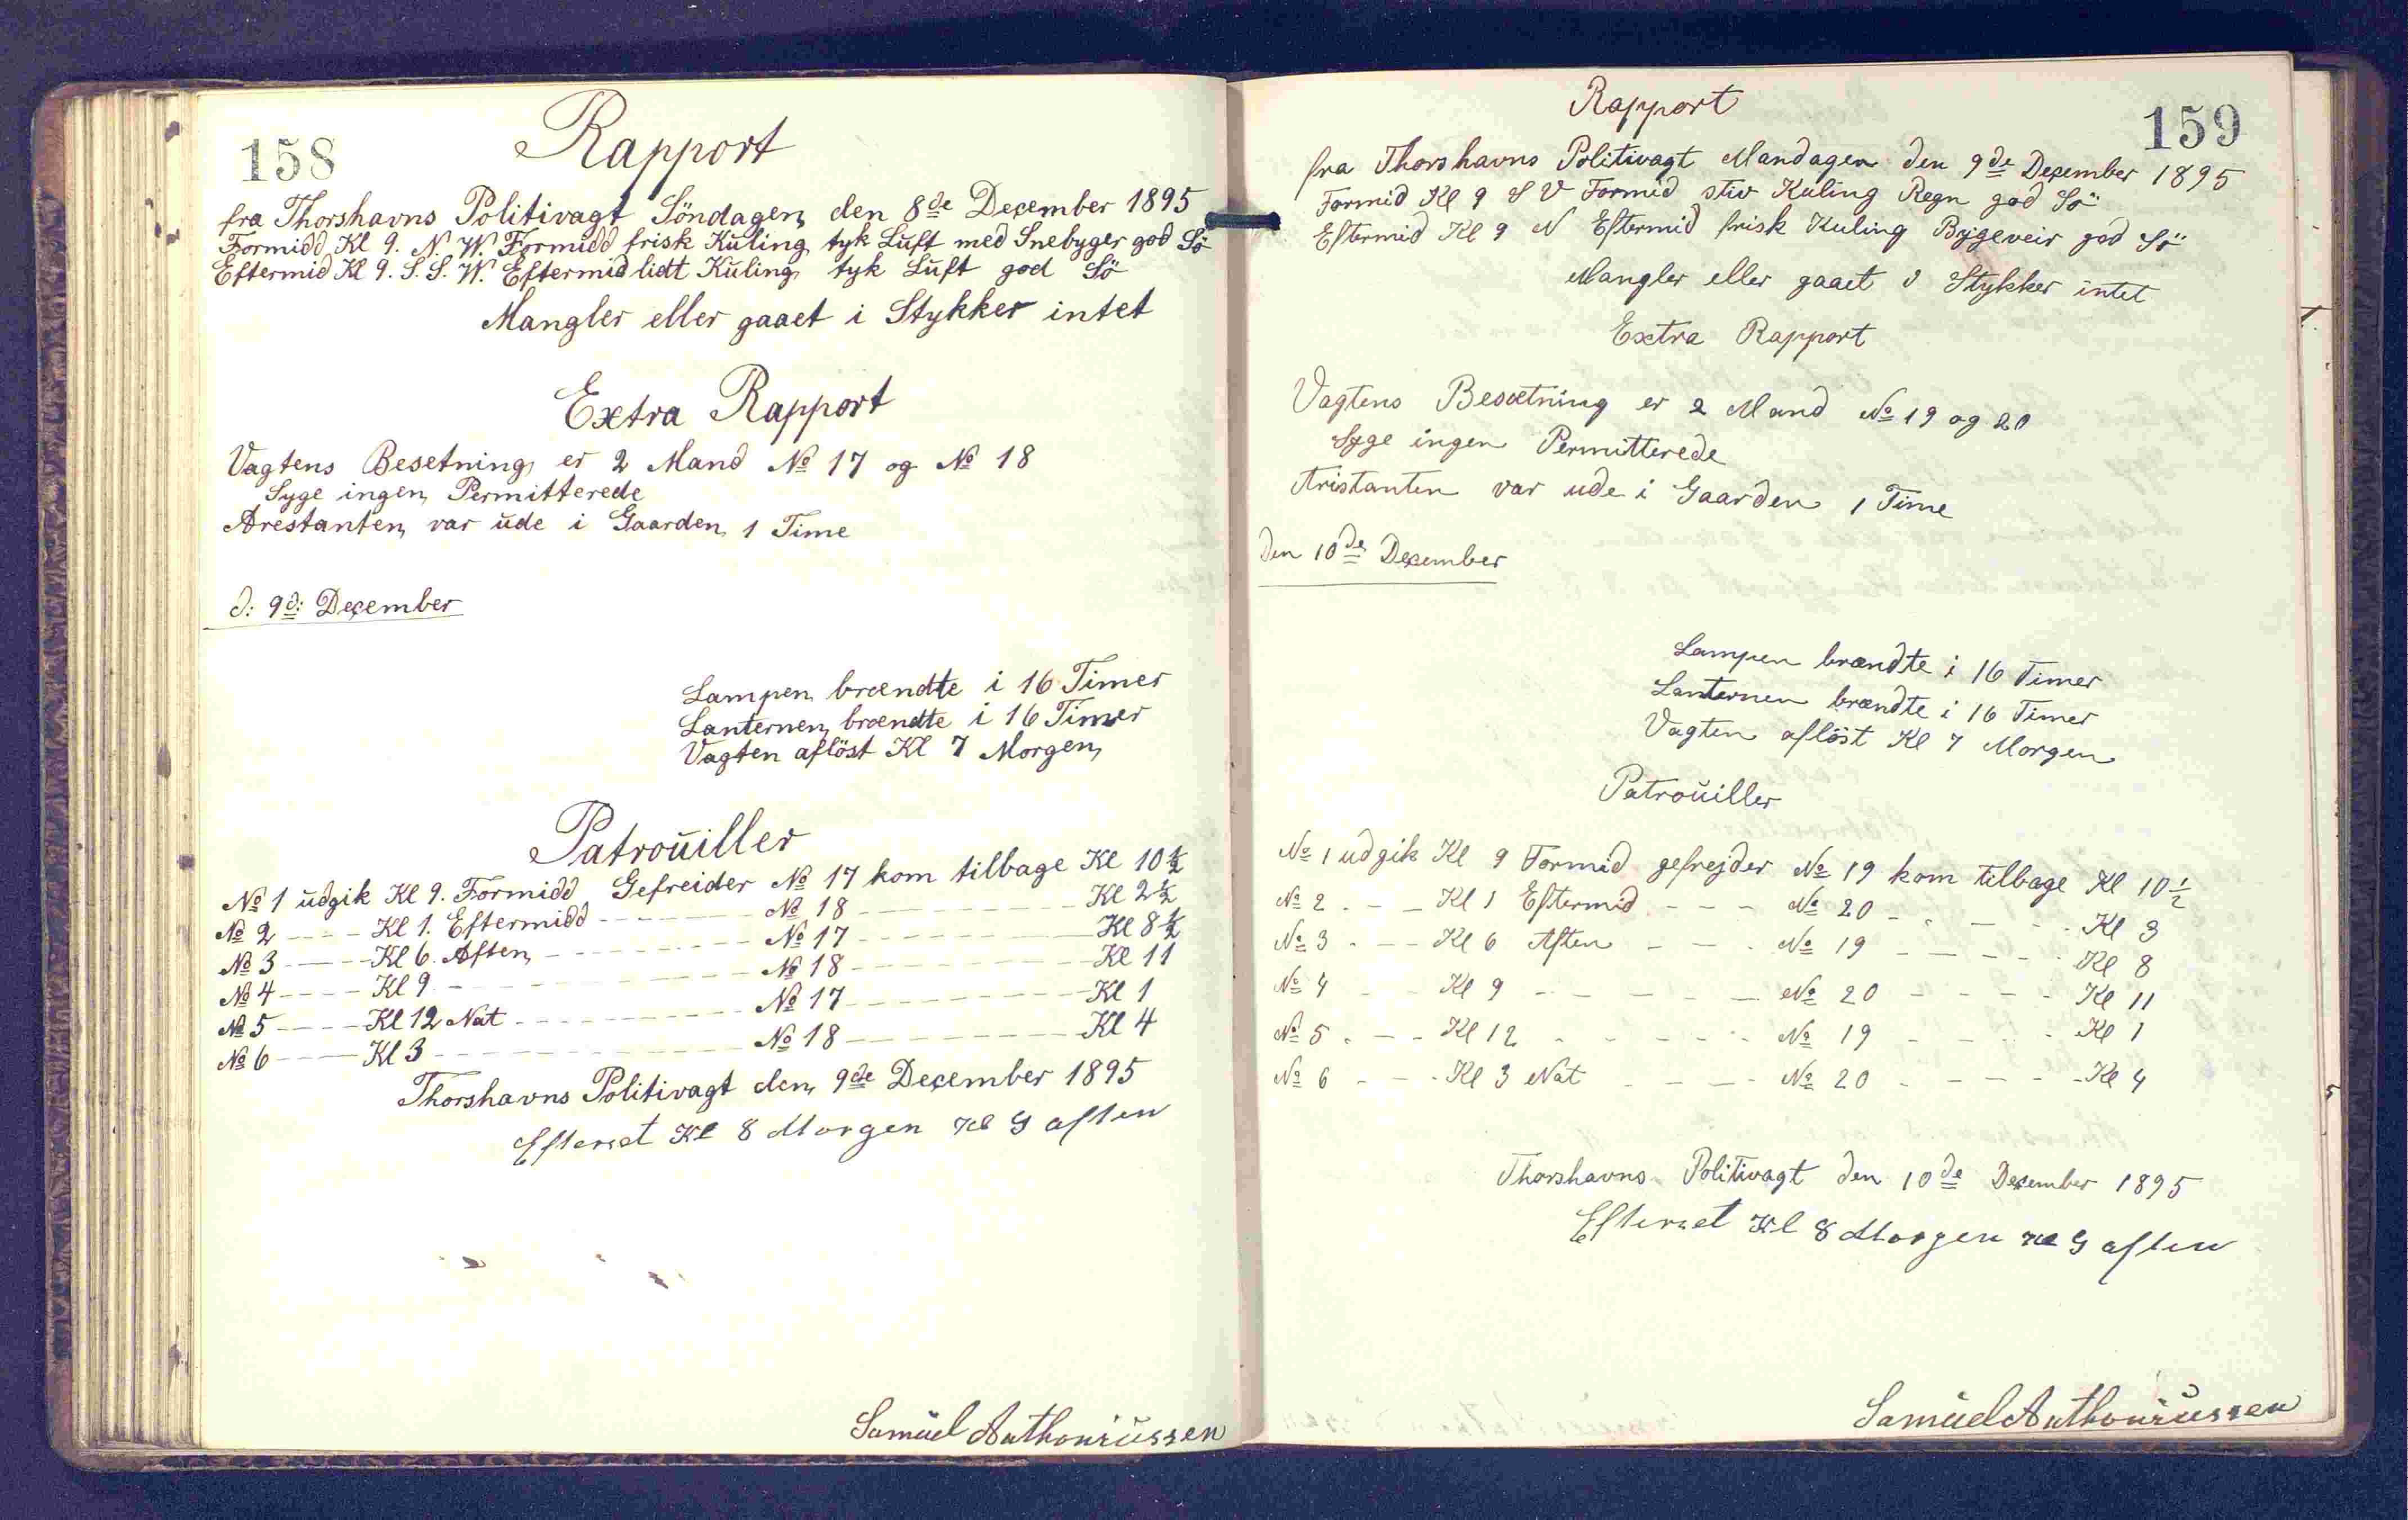 158
Rapport
fra Thorshavns Politivagt Söndagen den 8de December 1895
Formidd Kl 9. N. W. Formidd frisk Kuling tyk Luft med Snebyger god Sö
Eftermid Kl 9. S. S. W. Eftermid lidt Kuling tyk Luft god Sö
Mangler eller gaaet i Stykker intet
Extra Rapport
Vagtens Besetning er 2 Mand No 17 og No 18
Syge ingen Permitterede
Arestanten var ude i Gaarden 1 Time
d: 9d: December
Lampen brændte i 16 Timer
Lanternen brændte i 16 Timer
Vagten aflöst Kl 7 Morgen
Patrouiller
No 1 udgik Kl 9. Formidd Gefreider No 17 kom tilbage Kl 10 1/2
No 2 - - - - Kl 1. Eftermidd - - - - - - No 18 - - - - - - Kl 2 1/2
No 3 - - - - Kl 6. Aften - - - - - - No 17 - - - - - - Kl 8 1/2
No 4 - - - - Kl 9 - - - - - - No 18 - - - - - - Kl 11
No 5 - - - - Kl 12 Nat - - - - - - No 17 - - - - - - Kl 1
No 6 - - - - Kl 3 - - - - - - No 18 - - - - - - Kl 4
Thorshavns Politivagt den 9de December 1895
Efterset Kl 8 Morgen Kl 9 aften
Samuel Anthoniussen
159
Rapport
fra Thorshavns Politivagt Mandagen den 9de December 1895
Formid Kl 9 S V Formid stiv Kuling Regn god Sö
Eftermid Kl 9 N Eftermid frisk Kuling Bygeveir god Sö
Mangler eller gaaet i Stykker intet
Extra Rapport
Vagtens Besætning er 2 Mand No 19 og 20
Syge ingen Permitterede
Aristanten var ude i Gaarden 1 Time
Den 10de December
Lampen brændte i 16 Timer
Lanternen brændte i 16 Timer
Vagten aflöst Kl 7 Morgen
Patrouiller
No 1 udgik Kl 9 Formid gefrejder No 19 kom tilbage Kl 10 1/2
No 2 - - - Kl 1 Eftermid - - - No 20 - - - - Kl 3
No 3 - - - Kl 6 Aften - - - No 19 - - - - Kl 8
No 4 - - Kl 9 - - - - - No 20 - - - - Kl 11
No 5 - - - Kl 12 - - - - - No 19 - - - - Kl 1
No 6 - - - Kl 3 Nat - - - - No 20 - - - - Kl 4
Thorshavns Politivagt den 10de December 1895
Efterset Kl 8 Morgen Kl 9 aften
Samuel Anthoniussen